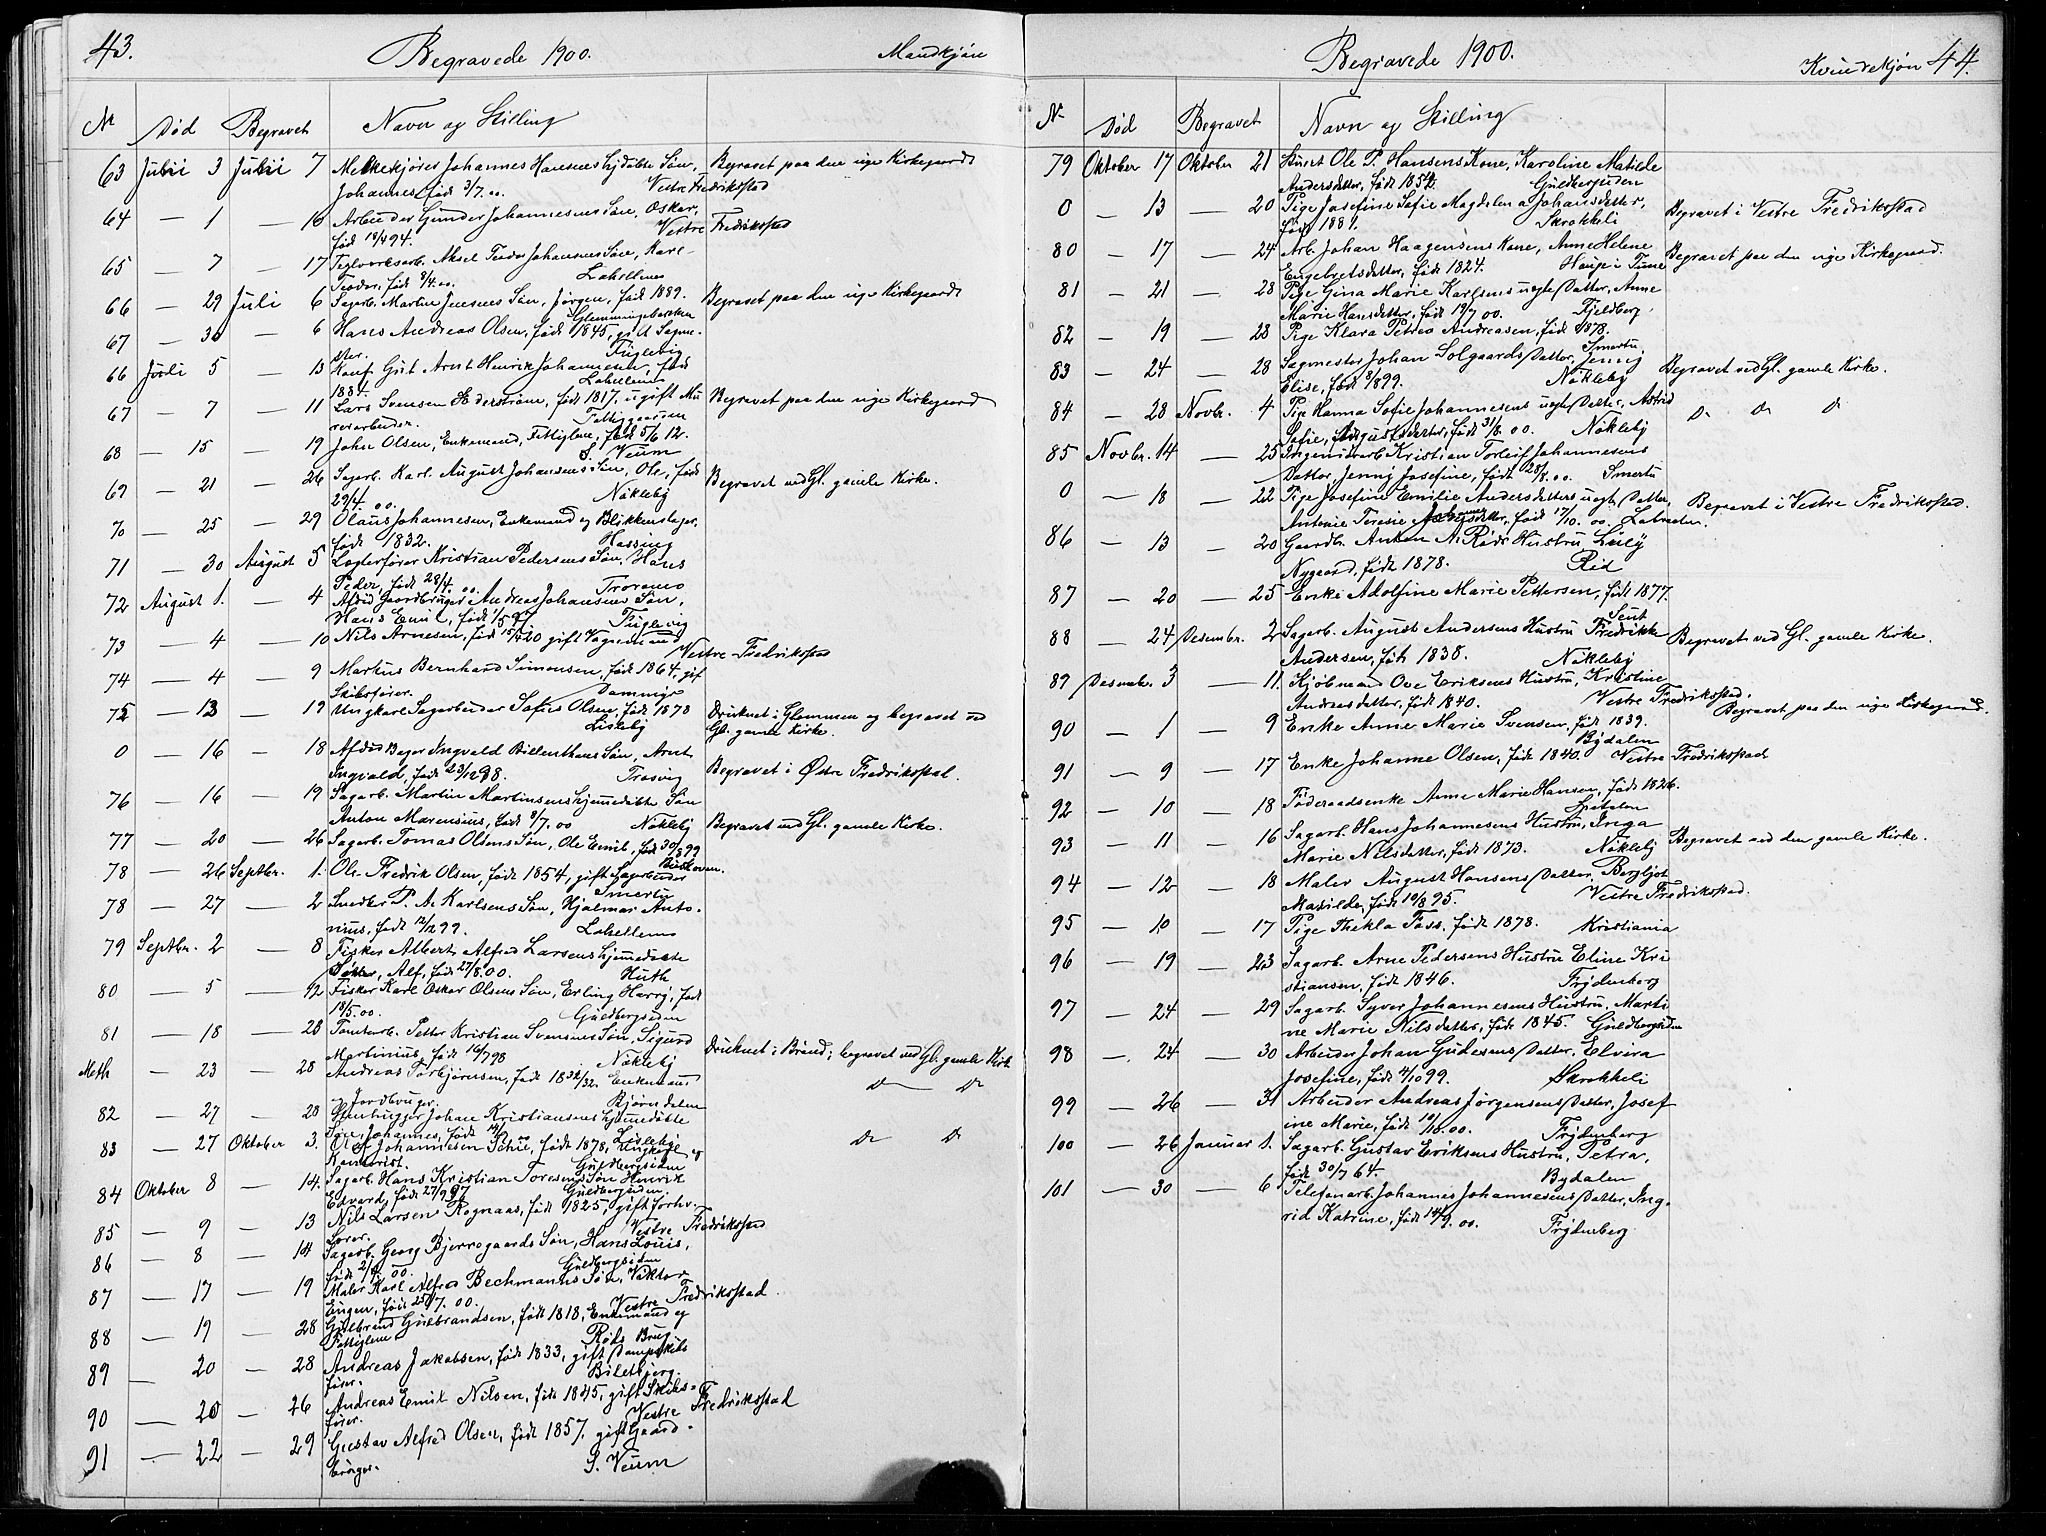 43.
Begravede 1900.
Mandkjøn
Nr
Død
Begravet
Navn og Stilling
63 Juli 3 Juli 7 Melkekjører Johannes Hansens hjdøbte Søn, Begravet paa den nye Kirkegaard
Johannes, født 3/7.00. Vestre Fredriksstad
64 — 1 — 16 Arbeider Gunder Johannesens Søn, Oskar,
født 94. Vestre Fredriksstad
65 — 7 — 17 Teglverksarb. Aksel Teodor Johansens Søn, Karl
Teodor, født 8/4.00. Lahellemo
66 — 29 Juli 6 Sagarb. Martin Jensens Søn, Jørgen, født 1889. Begravet paa den nye Kirkegaard
Glemmingebakken
67 — 30 — 6 Hans Andreas Olsen, født 1845, gift Sagme-
ster. Fuglevig
66 Juli 5 — 13 Kauf. Gut Arnt Henrik Johannesen, født
1884. Lahellemo
67 — 7 — 11 Lars Svensen Søderstrøm, født 1817, ugift Mu Begravet paa den nye Kirkegaard
rerarbeider. Fattiggaarden
68 — 15 — 19 John Olsen, Enkemand, Fattiglem, født 5/6 12.
S. Veum
69 — 21 — 26 Sagarb. Karl August Johansens Søn, Ole, født Begravet ved Gl. gamle Kirke.
29/4.00. Nøkleby
70 — 25 — 29 Olaus Johannesen, Enkemand og Blikkenslager,
født 1832. Hassing
71 — 30 August 5 Logterfører Kristian Pedersens Søn, Hans
Peder, født 28/4.00. Troramo
72 August 1. — 4 Afdød Gaardbruger Andreas Johansens Søn,
Hans Emil, født Fuglevig
73 — 4 — 10 Nils Arnesen, født gift Vognmand
Vestre Fredriksstad
74 — 4 — 9 Martus Bernhard Simonsen, født 1864, gif
Skibsfører. Dammyr
75 — 13 — 19 Ungkarl Sagarbeider Sofus Olsen, født 1878 Druknet i Glommen og begravet ved
Lisleby Gl. gamle Kirke.
0 — 16 — 18 Afdød Bager Ingvald Billenthens Søn, Arnt
Ingvald, født 23/12 98. Trosvig Begravet i Østre Fredriksstad.
76 — 16 — 19 Sagarb. Martin Martinsens hjemmedøbte Søn
Anton Marensius, født 8/7.00 Nøkleby Begravet ved Gl. gamle Kirke.
77 — 20 — 26 Sagarb. Tomas Olsens Søn, Ole Emil, født 30/8 99
78 — 26 Septbr. 1. Ole Fredrik Olsen, født 1854, gift Sagarbeider
Smertu
78 — 27 — 2 Snedker P. A. Karlsens Søn, Hjalmar Anto-
nius, født 12/12 99. Lahellemo
79 Septbr. 2 — 8 Fisker Albert Alfred Larsens hjemmedøbte
Søn, Alf, født 27/8.00. Huth
80 — 5 — 12 Fisker Karl Oskar Olsens Søn, Erling Harry, født
18/5.00. Guldbergsiden
81 — 18 — 23 Tomtearb. Petter Kristian Svensens Søn, Sigurd
Martinius, født 16/7 98 Nøkleby Druknet i Brønd; begravet ved Gl. gamle Kirke
Meth — 23 — 28 Andreas Torbjørnsen, født 1832, Enkemand Do Do
og Jordbruger. Bjørndalen
82 — 27 — 28 Stenhugger Johan Kristiansens hjemmedøbte
Søn, Johannes, født Lisleby
83 — 27 Oktober 3. Johannesen født 1878, Ungkarl og Do Do
Kontorist. Guldbergsiden
84 Oktober 8 — 14. Sagarb. Hans Kristian Toresens Søn Henrik
Edvard, født 27/9 97 Guldbergsiden
85 — 9 — 13 Nils Larsen Rognaas, født 1825, gift forhv.
Lærer. Vestre Fredriksstad
86 — 8 — 14 Sagarb. Georg Bjerregaards Søn, Hans Louis,
født 00. Guldbergsiden
87 — 17 — 19 Maler Karl Alfred Bechmanns Søn, Viktor
Eugen, født 25/7.00. Vestre Fredriksstad
88 — 19 — 28 Gulbrand Gulbrandsen, født 1818, Enkemand og
Fattiglem Røds Brug
89 — 20 — 28 Andreas Jakobsen, født 1833, gift Dampskibs
fører. Biletbjerg
90 — 20 — 26 Andreas Emil Nilsen, født 1845, gift Skibs-
fører. Vestre Fredriksstad
91 — 22 — 29 Gustav Alfred Olsen, født 1857, gift Gaard-
bruger. S. Veum
Begravede 1900.
Kvindekjøn 44.
Nr
Død
Begravet
Navn og Stilling
79 Oktober 17 Oktober 21 Stuert Ole P. Hansens Kone, Karoline Matilde
Andersdatter, født 1854. Guldbergsiden
0 — 13 — 20 Pige Josefine Sofie Magdalena Johansdatter, Begravet i Vestre Fredriksstad
født 1881. Skrokkeli
80 — 17 — 24 Arb. Johan Haagensens Kone, Anne Helene Begravet paa den nye Kirkegaard.
Engebretsdatter, født 1824. Hauge i Tune
81 — 21 — 28 Pige Gina Marie Karlsens uegte Datter, Anne
Marie Hansdatter, født 19/7 00. Fjeldberg
82 — 19 — 28 Pige Klara Petrea Andreasen, født 1878.
Smertu
83 — 24 — 28 Sagmester Johan Solgaards Datter, Jenny Begravet ved Gl. gamle Kirke.
Elise, født 99. Nøkleby
84 — 28 Novbr. 4 Pige Hanna Sofie Johannesens uegte Datter, Astrid Do Do Do
Sofie, Augustsdatter, født 31/8.00. Nøkleby
85 Novbr. 14 — 25 Ingeniørarb Kristian Torleif Johannesens
Datter Jenny Josefine, født 28/8.00. Smertu
0 — 18 — 22 Pige Josefine Emilie Andersdatters uegte Datter, Begravet i Vestre Fredriksstad.
Antonie Teresie Johannesdatter, født 17/10.00. Labraaten.
86 — 13 — 20 Gaardb. Anton A. Røds Hustru Luly
Nygaard, født 1878. Rød
87 — 20 — 25 Enke Adolfine Marie Pettersen, født 1877.
88 — 24 Desembr. 2 Sagarb. August Andersens Hustru Fredrikke Begravet ved Gl. gamle Kirke.
Andersen, født 1838. Nøkleby
89 Desembr. 3 — 11. Kjøbmand Ove Eriksens Hustru, Kristine
Andreasdatter, født 1840. Vestre Fredriksstad.
90 — 1 — 9 Enke Anne Marie Svensen, født 1839. Begravet paa den nye Kirkegaard.
Bydalen
91 — 9 — 17 Enke Johanne Olsen, født 1840. Vestre Fredriksstad
92 — 10 — 18 Føderaadsenke Anne Marie Hansen, født 1826.
Spetalen
93 — 11 — 16 Sagarb. Hans Johannesens Hustru, Inga Begravet ved den gamle Kirke.
Marie Nilsdatter, født 1873. Nøkleby
94 — 12 — 18 Maler August Hansens Datter, Bergljot
Matilde, født 19/8 95. Vestre Fredriksstad.
95 — 10 — 17 Pige Thekla Foss, født 1878. Kristiania
96 — 19 — 23 Sagarb. Arne Pedersens Hustru Eline Kri
stiansen, født 1846. Frydenberg
97 — 24 — 29 Sagarb. Syver Johannesens Hustru, Marti
ne Marie Nilsdatter, født 1845. Guldbergsiden
98 — 24 — 30 Arbeider Johan Gudesens Datter, Elvira
Josefine, født 4/10 99. Skrokkeli
99 — 26 — 31 Arbeider Andreas Jørgensens Datter, Josef
ine Marie, født 19/10.00. Frydenberg
100 — 26 Januar 1. Sagarb. Gustav Eriksens Hustru, Petra,
født 30/7 64. Bydalen
101 — 30 — 6 Telefonarb. Johannes Johannesens Datter, Ing-
rid Katrine, født 14/9.00. Frydenberg